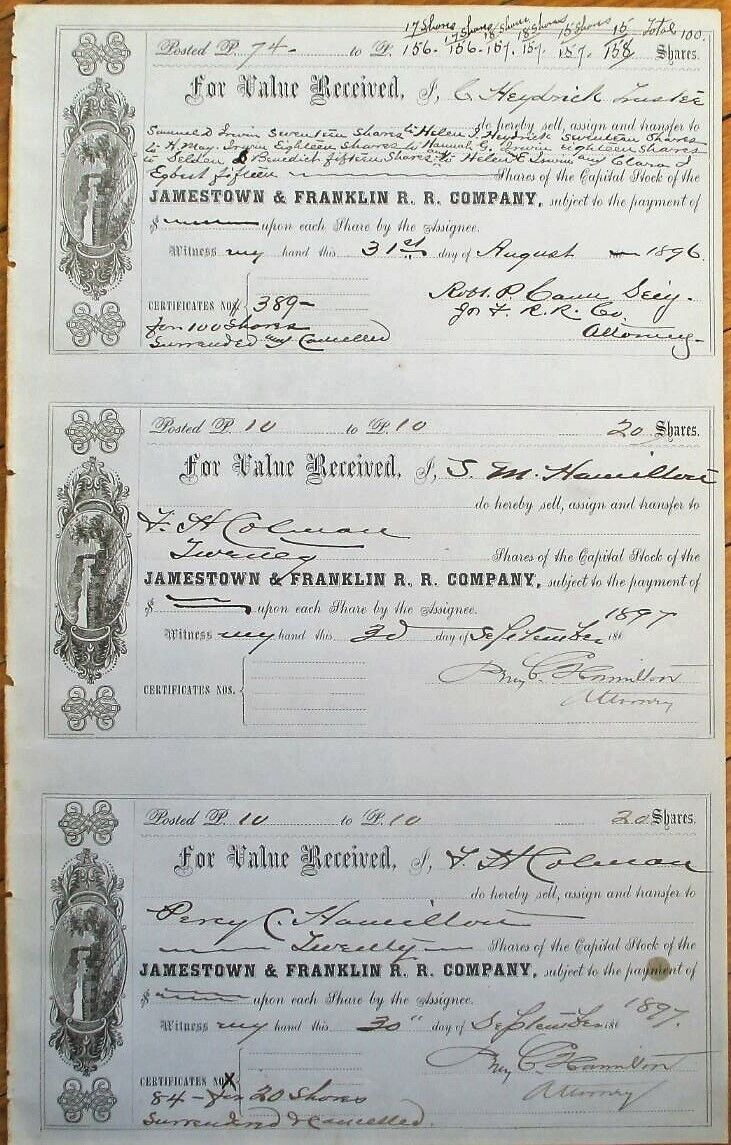 17 Shares 17 Shares 18 Shares 18 Shares 15 Shares 15 Total 100.
Posted P. 74- to P. 156- 156- 157. 157. 157. 158 Shares.
For Value Received, I, C Heydrick Trustee
do hereby sell, assign and transfer to
Samuel D Irwin Seventeen Shares to Helen I. Heydrick Seventeen Shares
to H. May. Irwin Eighteen Shares to Hannah G. Irwin eighteen Shares
to Selden Benedict fifteen Shares and to Helen E Irwin and Clara I
Egbert fifteen Shares of the Capital Stock of the
JAMESTOWN & FRANKLIN R. R. COMPANY, subject to the payment of
$ upon each Share by the Assignee.
Witness my hand this 31st day of August 1896.
Robt. P. Cann Secy.
CERTIFICATES NO 389-
J & F. R. R. Co.
for 100 Shares
Attorney-
Surrendered and Cancelled
Posted P. 10 to P. 10 20 Shares.
For Value Received, I, S. M. Hamilton
do hereby sell, assign and transfer to
F. H Colman
Twenty Shares of the Capital Stock of the
JAMESTOWN & FRANKLIN R. R. COMPANY, subject to the payment of
$ upon each Share by the Assignee.
Witness my hand this 3d day of September 186 1897
Percy C. Hamilton
Attorney
CERTIFICATES NOS.
Posted P. 10 to P. 10 20 Shares.
For Value Received, I, F. H Colman
do hereby sell, assign and transfer to
Percy C. Hamilton
Twenty Shares of the Capital Stock of the
JAMESTOWN & FRANKLIN R. R. COMPANY, subject to the payment of
$ upon each Share by the Assignee.
Witness my hand this 30" day of September 186 1897.
Percy C. Hamilton
Attorney
CERTIFICATES NO
84 - for 20 Shares
Surrendered & Cancelled.